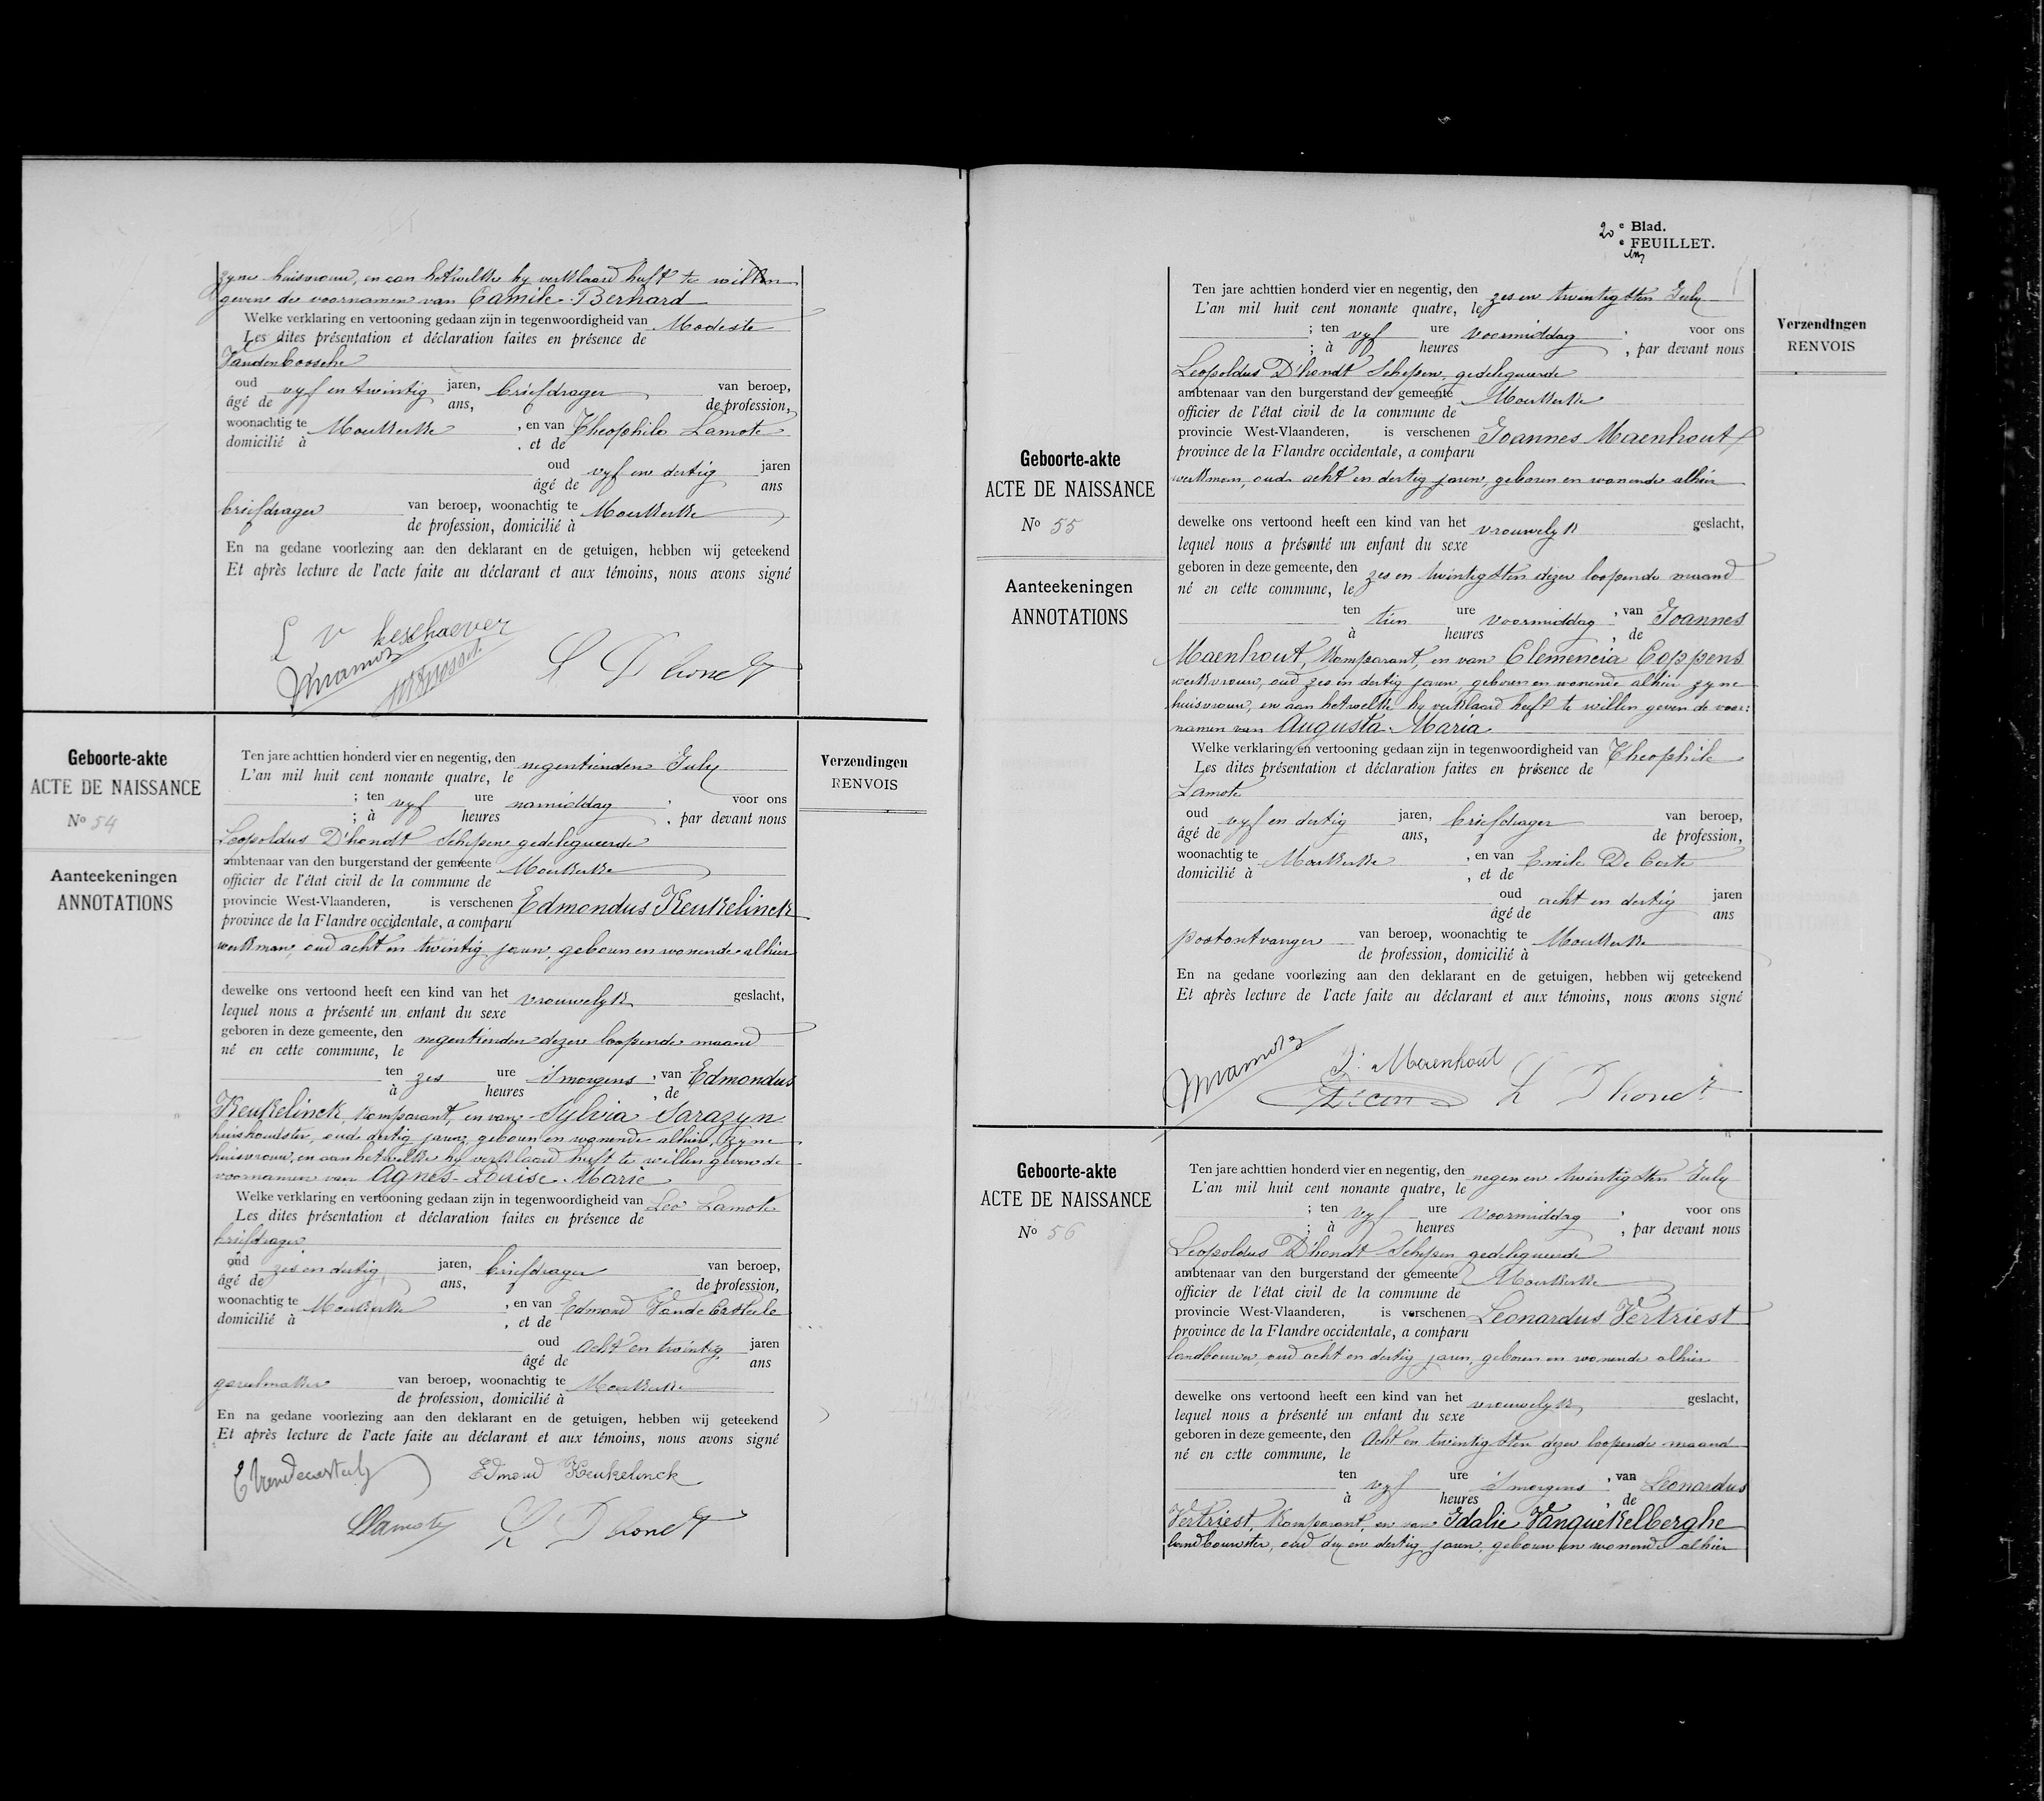 zyne huisvrouw, en aan hetwelke hy verklaard heeft te willen
geven de voornamen van Camile-Berhard
Welke verklaring en vertooning gedaan zijn in tegenwoordigheid van Modeste
Les dites présentation et déclaration faites en présence de
Vandenbossche
oud vyf en twintig jaren, briefdrager van beroep,
âgé de ans, de profession,
woonachtig te Moerkerke , en van Theophile Lamote
domicilié à , et de
oud vyf en dertig jaren
âgé de ans
briefdrager van beroep, woonachtig te Moerkerke
de profession, domicilié à
En na gedane voorlezing aan den deklarant en de getuigen, hebben wij geteekend
Et après lecture de l'acte faite au déclarant et aux témoins, nous avons signé
L D'hondt
Geboorte-akte
ACTE DE NAISSANCE
No 54
Aanteekeningen
ANNOTATIONS
Verzendingen
RENVOIS
Ten jare achttien honderd vier en negentig, den negentienden July
L'an mil huit cent nonante quatre, le
; ten vyf ure namiddag , voor ons
; à heures , par devant nous
Leopoldus D'hondt Schepen gedelegueerde
ambtenaar van den burgerstand der gemeente Moerkerke
officier de l'état civil de la commune de
provincie West-Vlaanderen, is verschenen Edmondus Keukelinck
province de la Flandre occidentale, a comparu
werkman, oud acht en twintig jaren, geboren en wonende alhier
dewelke ons vertoond heeft een kind van het vrouwelyk geslacht,
lequel nous a présenté un enfant du sexe
geboren in deze gemeente, den negentienden dezer loopende maand
né en cette commune, le
ten zes ure 's morgens , van Edmondus
à heures , de
Keukelinck, komparant, en van Sylvia Sarazyn
huishoudster, oud dertig jaren, geboren en wonende alhier, zyne
huisvrouw, en aan hetwelke hy verklaard heeft te willen geven de
voornamen van Agnes-Louise-Marie
Welke verklaring en vertooning gedaan zijn in tegenwoordigheid van Leo Lamote
Les dites présentation et déclaration faites en présence de
briefdrager
oud zes en dertig jaren, briefdrager van beroep,
âgé de ans, de profession,
woonachtig te Moerkerke , en van Edmond Vande Casteele
domicilié à , et de
oud acht en twintig jaren
âgé de ans
gareelmaker van beroep, woonachtig te Moerkerke
de profession, domicilié à
En na gedane voorlezing aan den deklarant en de getuigen, hebben wij geteekend
Et après lecture de l'acte faite au déclarant et aux témoins, nous avons signé
E Vandecasteele Edmond Keukelinck
LLamote L D'hondt
20e Blad.
e FEUILLET.
Geboorte-akte
ACTE DE NAISSANCE
No 55
Aanteekeningen
ANNOTATIONS
Verzendingen
RENVOIS
Ten jare achttien honderd vier en negentig, den zes en twintigsten July
L'an mil huit cent nonante quatre, le
; ten vyf ure voormiddag , voor ons
; à heures , par devant nous
Leopoldus D'hondt Schepen, gedelegueerde
ambtenaar van den burgerstand der gemeente Moerkerke
officier de l'état civil de la commune de
provincie West-Vlaanderen, is verschenen Joannes Maenhout
province de la Flandre occidentale, a comparu
werkman, oud acht en dertig jaren, geboren en wonende alhier
dewelke ons vertoond heeft een kind van het vrouwelyk geslacht,
lequel nous a présenté un enfant du sexe
geboren in deze gemeente, den zes en twintigsten dezer loopende maand
né en cette commune, le
ten tien ure voormiddag , van Joannes
à heures , de
Maenhout, komparant, en van Clemencia Coppens
werkvrouw, oud zes en dertig jaren geboren en wonende alhier zyne
huisvrouw, en aan hetwelke hy verklaard heeft te willen geven de voor:
namen van Augusta-Maria
Welke verklaring en vertooning gedaan zijn in tegenwoordigheid van Theophile
Les dites présentation et déclaration faites en présence de
Lamote
oud vyf en dertig jaren, briefdrager van beroep,
âgé de ans, de profession,
woonachtig te Moerkerke , en van Emile De Corte
domicilié à , et de
oud acht en dertig jaren
âgé de ans
postontvanger van beroep, woonachtig te Moerkerke
de profession, domicilié à
En na gedane voorlezing aan den deklarant en de getuigen, hebben wij geteekend
Et après lecture de l'acte faite au déclarant et aux témoins, nous avons signé
J. Maenhout
L D'hondt
Geboorte-akte
ACTE DE NAISSANCE
No 56
Ten jare achttien honderd vier en negentig, den negen en twintigsten July
L'an mil huit cent nonante quatre, le
; ten vyf ure voormiddag , voor ons
; à heures , par devant nous
Leopoldus D'hondt Schepen gedelegueerde
ambtenaar van den burgerstand der gemeente Moerkerke
officier de l'état civil de la commune de
provincie West-Vlaanderen, is verschenen Leonardus Vertriest
province de la Flandre occidentale, a comparu
landbouwer, oud acht en dertig jaren, geboren en wonende alhier
dewelke ons vertoond heeft een kind van het vrouwelyk geslacht,
lequel nous a présenté un enfant du sexe
geboren in deze gemeente, den acht en twintigsten dezer loopende maand
né en cette commune, le
ten vyf ure 's morgens , van Leonardus
à heures , de
Vertriest, komparant, en van Idalie Vanquekelberghe
landbouwster, oud dry en dertig jaren, geboren en wonende alhier